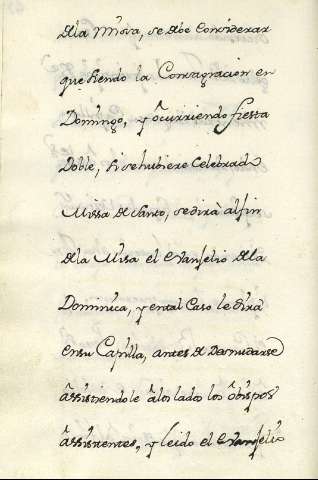 dela Missa, se debe Considerar
que siendo la Consagracion en
Domingo, y ocurriendo fiesta
Doble, si se hubiere Celebrado
Missa de Santo, se dirà al fin
dela Missa el evanjelio dela
Dominica, y en tal Caso le dirà
en su Capilla, antes de Desnudarse
assistiendole à los lados los obispos
assistentes, y leido el evanjelio